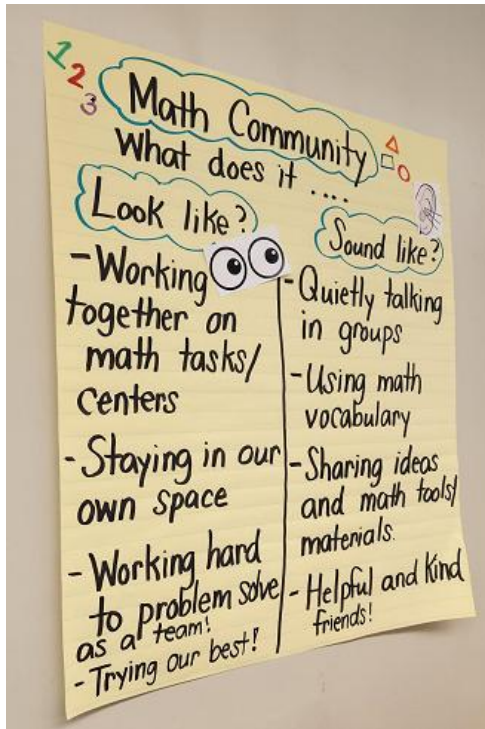 1
2
3
Math Community
What does it ....
Look like?
- Working
together on
math tasks/
centers
- Staying in our
own space
- Working hard
to problem solve
as a team!
- Trying our best!
Sound like?
- Quietly talking
in groups
- Using math
vocabulary
- Sharing ideas
and math tools/
materials.
- Helpful and kind
friends!